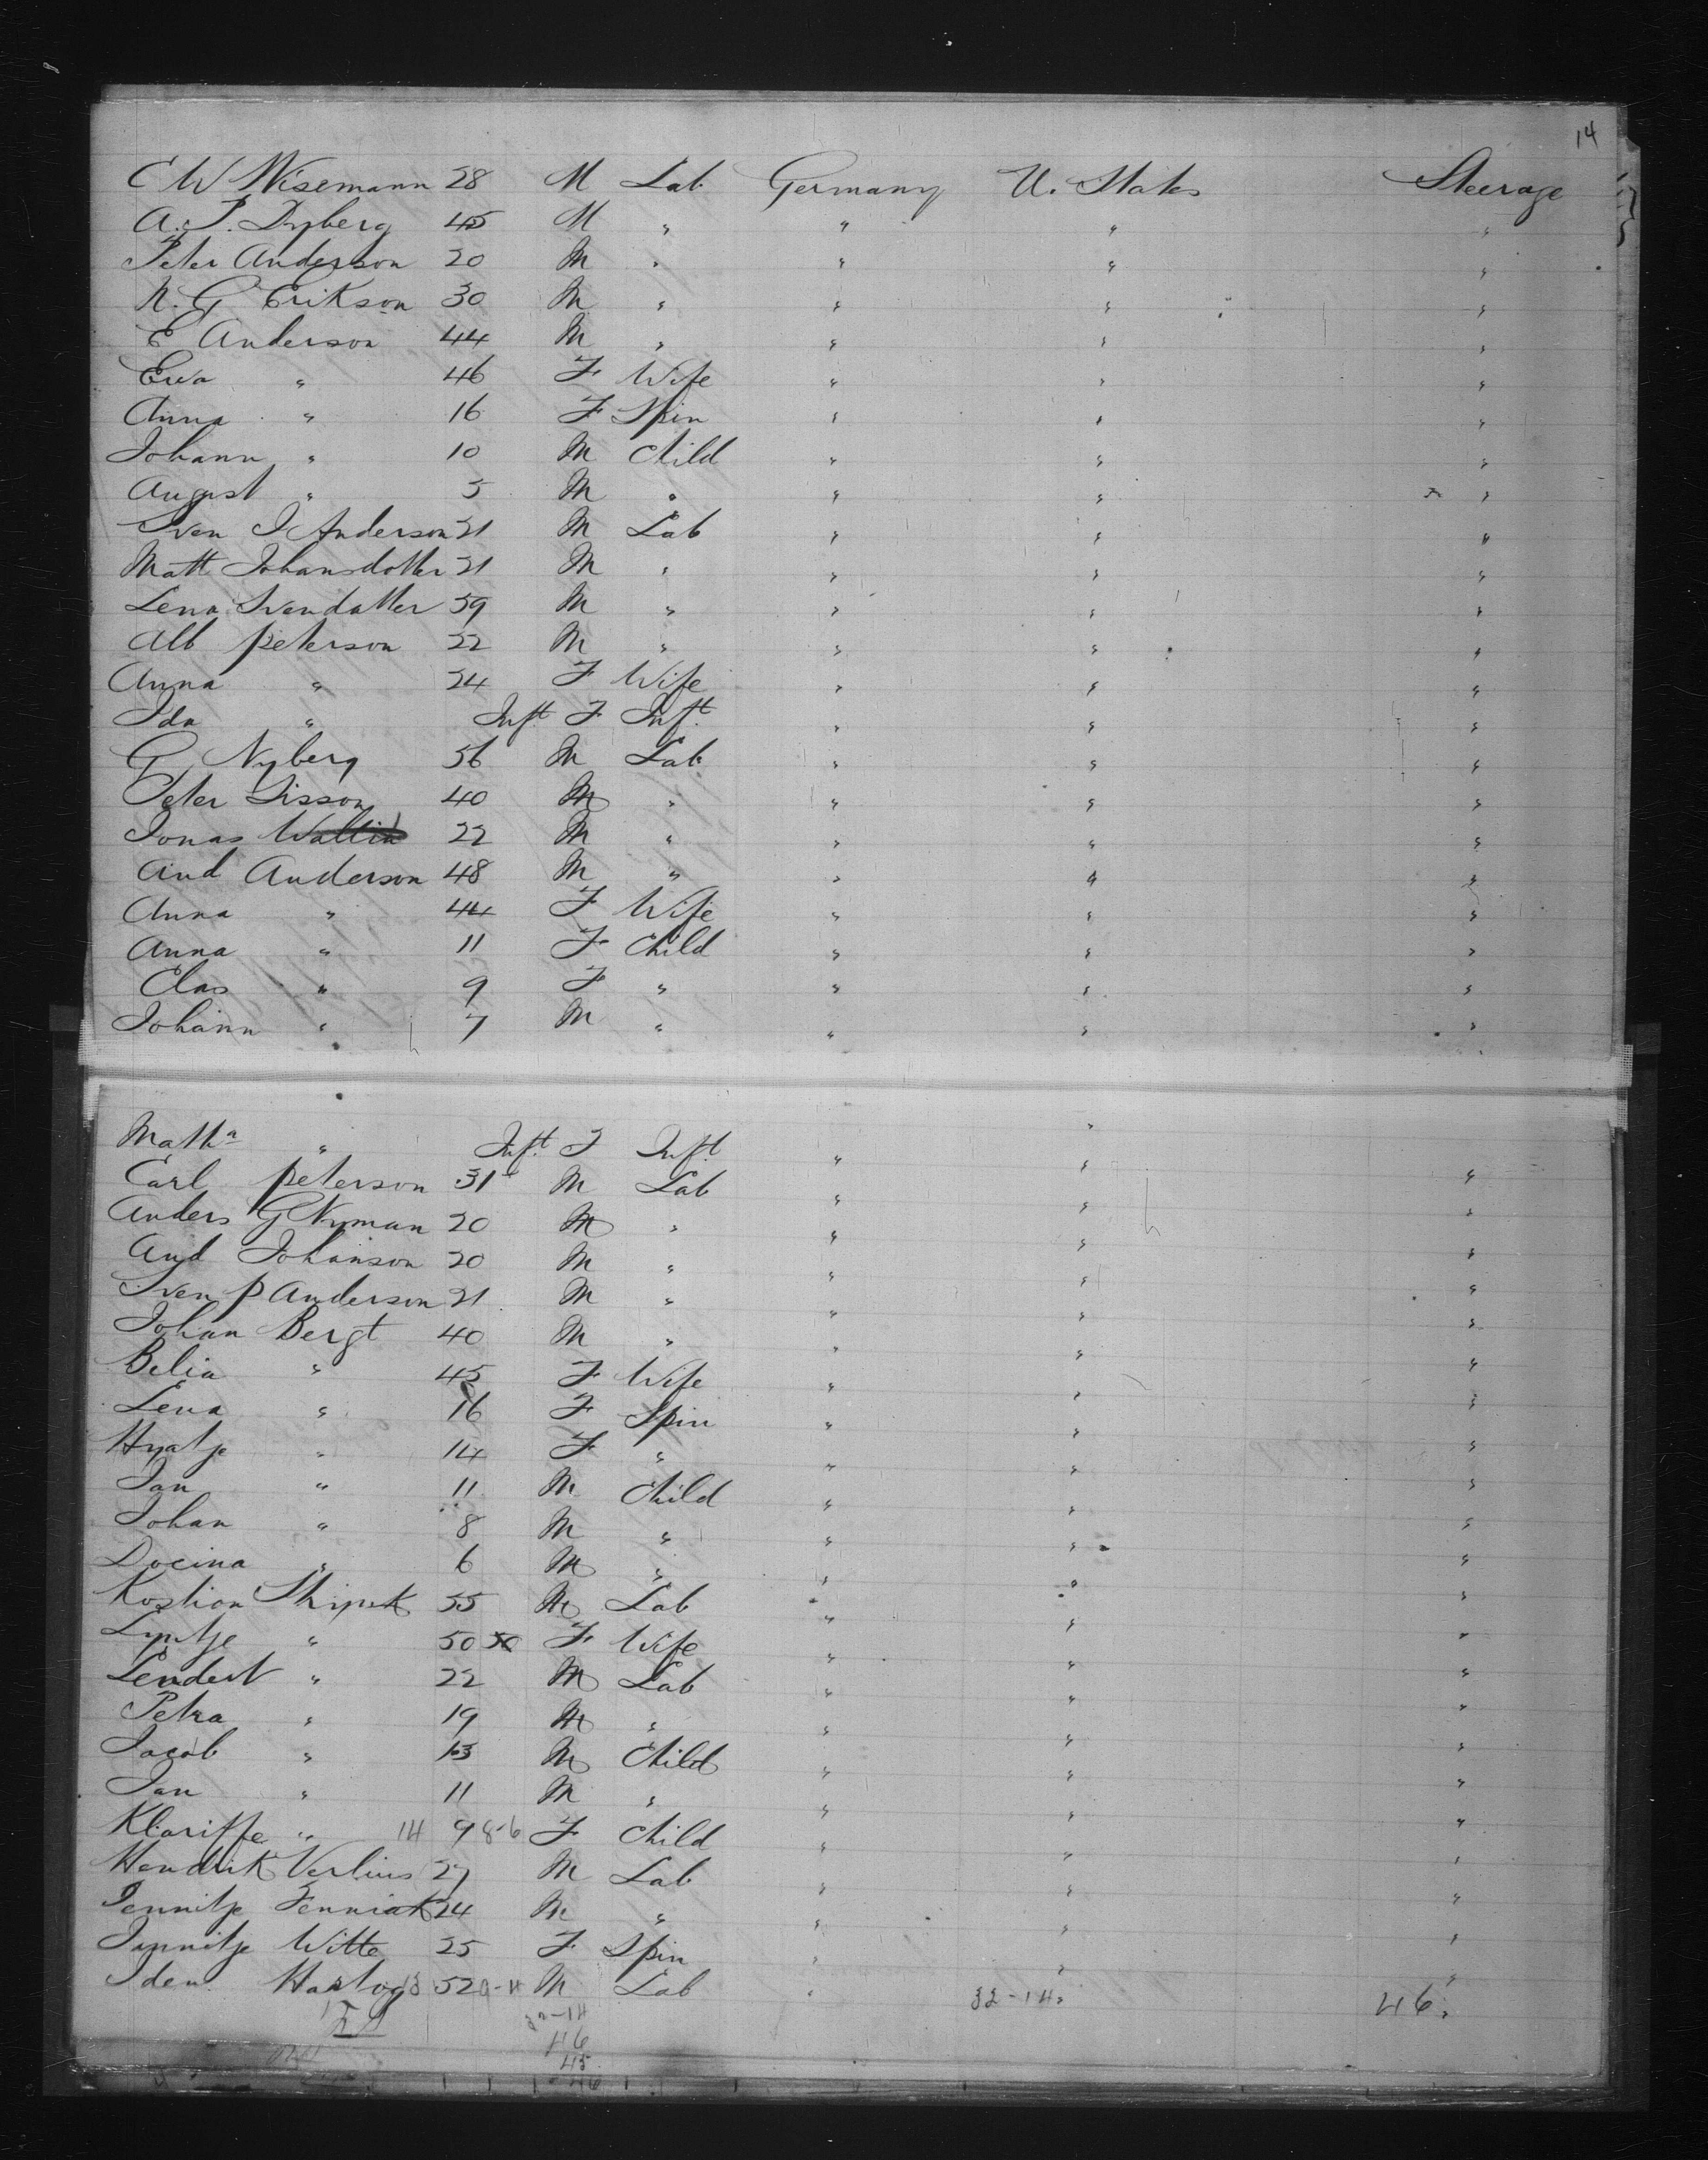 14
C W Wisemann 28 M Lab Germany U. States Steerage
A. P. Dyberg 45 M " " " "
Peter Anderson 20 M " " " "
N. G Erikson 30 M " " " "
E Anderson 44 M " " " "
Ewa " 46 F Wife " " "
Anna " 16 F Spin " " "
Johann " 10 M Child " " "
August " 5 M " " " "
Sven J Anderson 21 M Lab " " "
Matt Johansdotter 21 M " " " "
Lena Svendatter 59 M " " " "
Alb Peterson 22 M " " " "
Anna " 24 F Wife " " "
Ida " Inft F Inft " " "
G Nyberg 56 M Lab " " "
Peter Sisson 40 M " " " "
Jonas Wallin 22 M " " " "
And Anderson 48 M " " " "
Anna " 44 F Wife " " "
Anna " 11 F Child " " "
Clas " 9 F " " " "
Johann " 7 M " " " "
Matha " Inft F Inft " "
Carl Peterson 31 M Lab " " "
Anders G Nyman 20 M " " " "
And Johanson 20 M " " " "
Sven P Anderson 21 M " " " "
Johan Bergt 40 M " " " "
Belia " 45 F Wife " " "
Lena " 16 F Spin " " "
Hyatje " 14 F " " " "
Jan " 11 M Child " " "
Johan " 8 M " " " "
Docina " 6 M " " " "
Kostion 55 M Lab " " "
Lyntje " 50 50 F Wife " " "
Lendert " 22 M Lab " " "
Petra " 19 M " " " "
Jacob " 13 M Child " " "
Jan " 11 M " " " "
Klariffe " 14 9 8-6 F Child " " "
Hendrik Verlius 27 M Lab " " "
Jennitje 24 M " " " "
Jennitje Witte 25 F Spin " " "
Iden Hartog 13 52 M Lab " 32-14 46
32-14
46
45
46